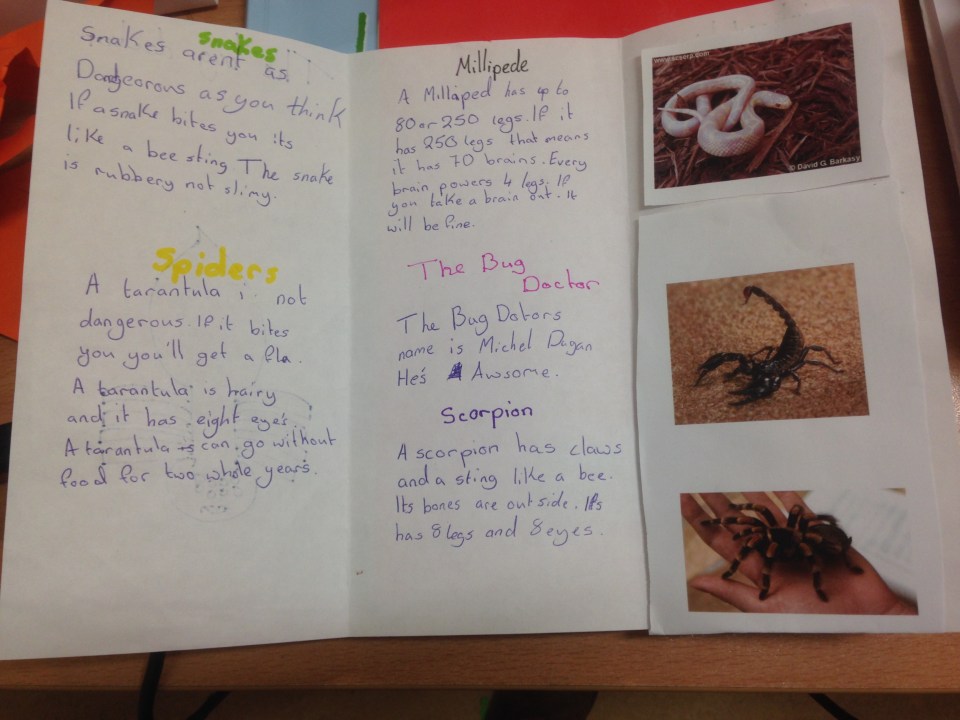 snakes
Snakes arent as
Dangeorous as you think
If a snake bites you its
like a bee sting The snake
is rubbery not slimy.
Spiders
A tarantula is not
dangerous. If it bites
you you'll get a fla.
A tarantula is hairy
and it has eight eye's.
A tarantula can go without
food for two whole years.
Millipede
A Millaped has up to
80 or 250 legs. If it
has 250 legs that means
it has 70 brains. Every
brain powers 4 legs. If
you take a brain out. It
will be fine.
The Bug
Doctor
The Bug Dotors
name is Michel Dugan
He's Awsome.
Scorpion
A scorpion has claws
and a sting like a bee.
Its bones are outside. Its
has 8 legs and 8 eyes.
© David G. Barkasy